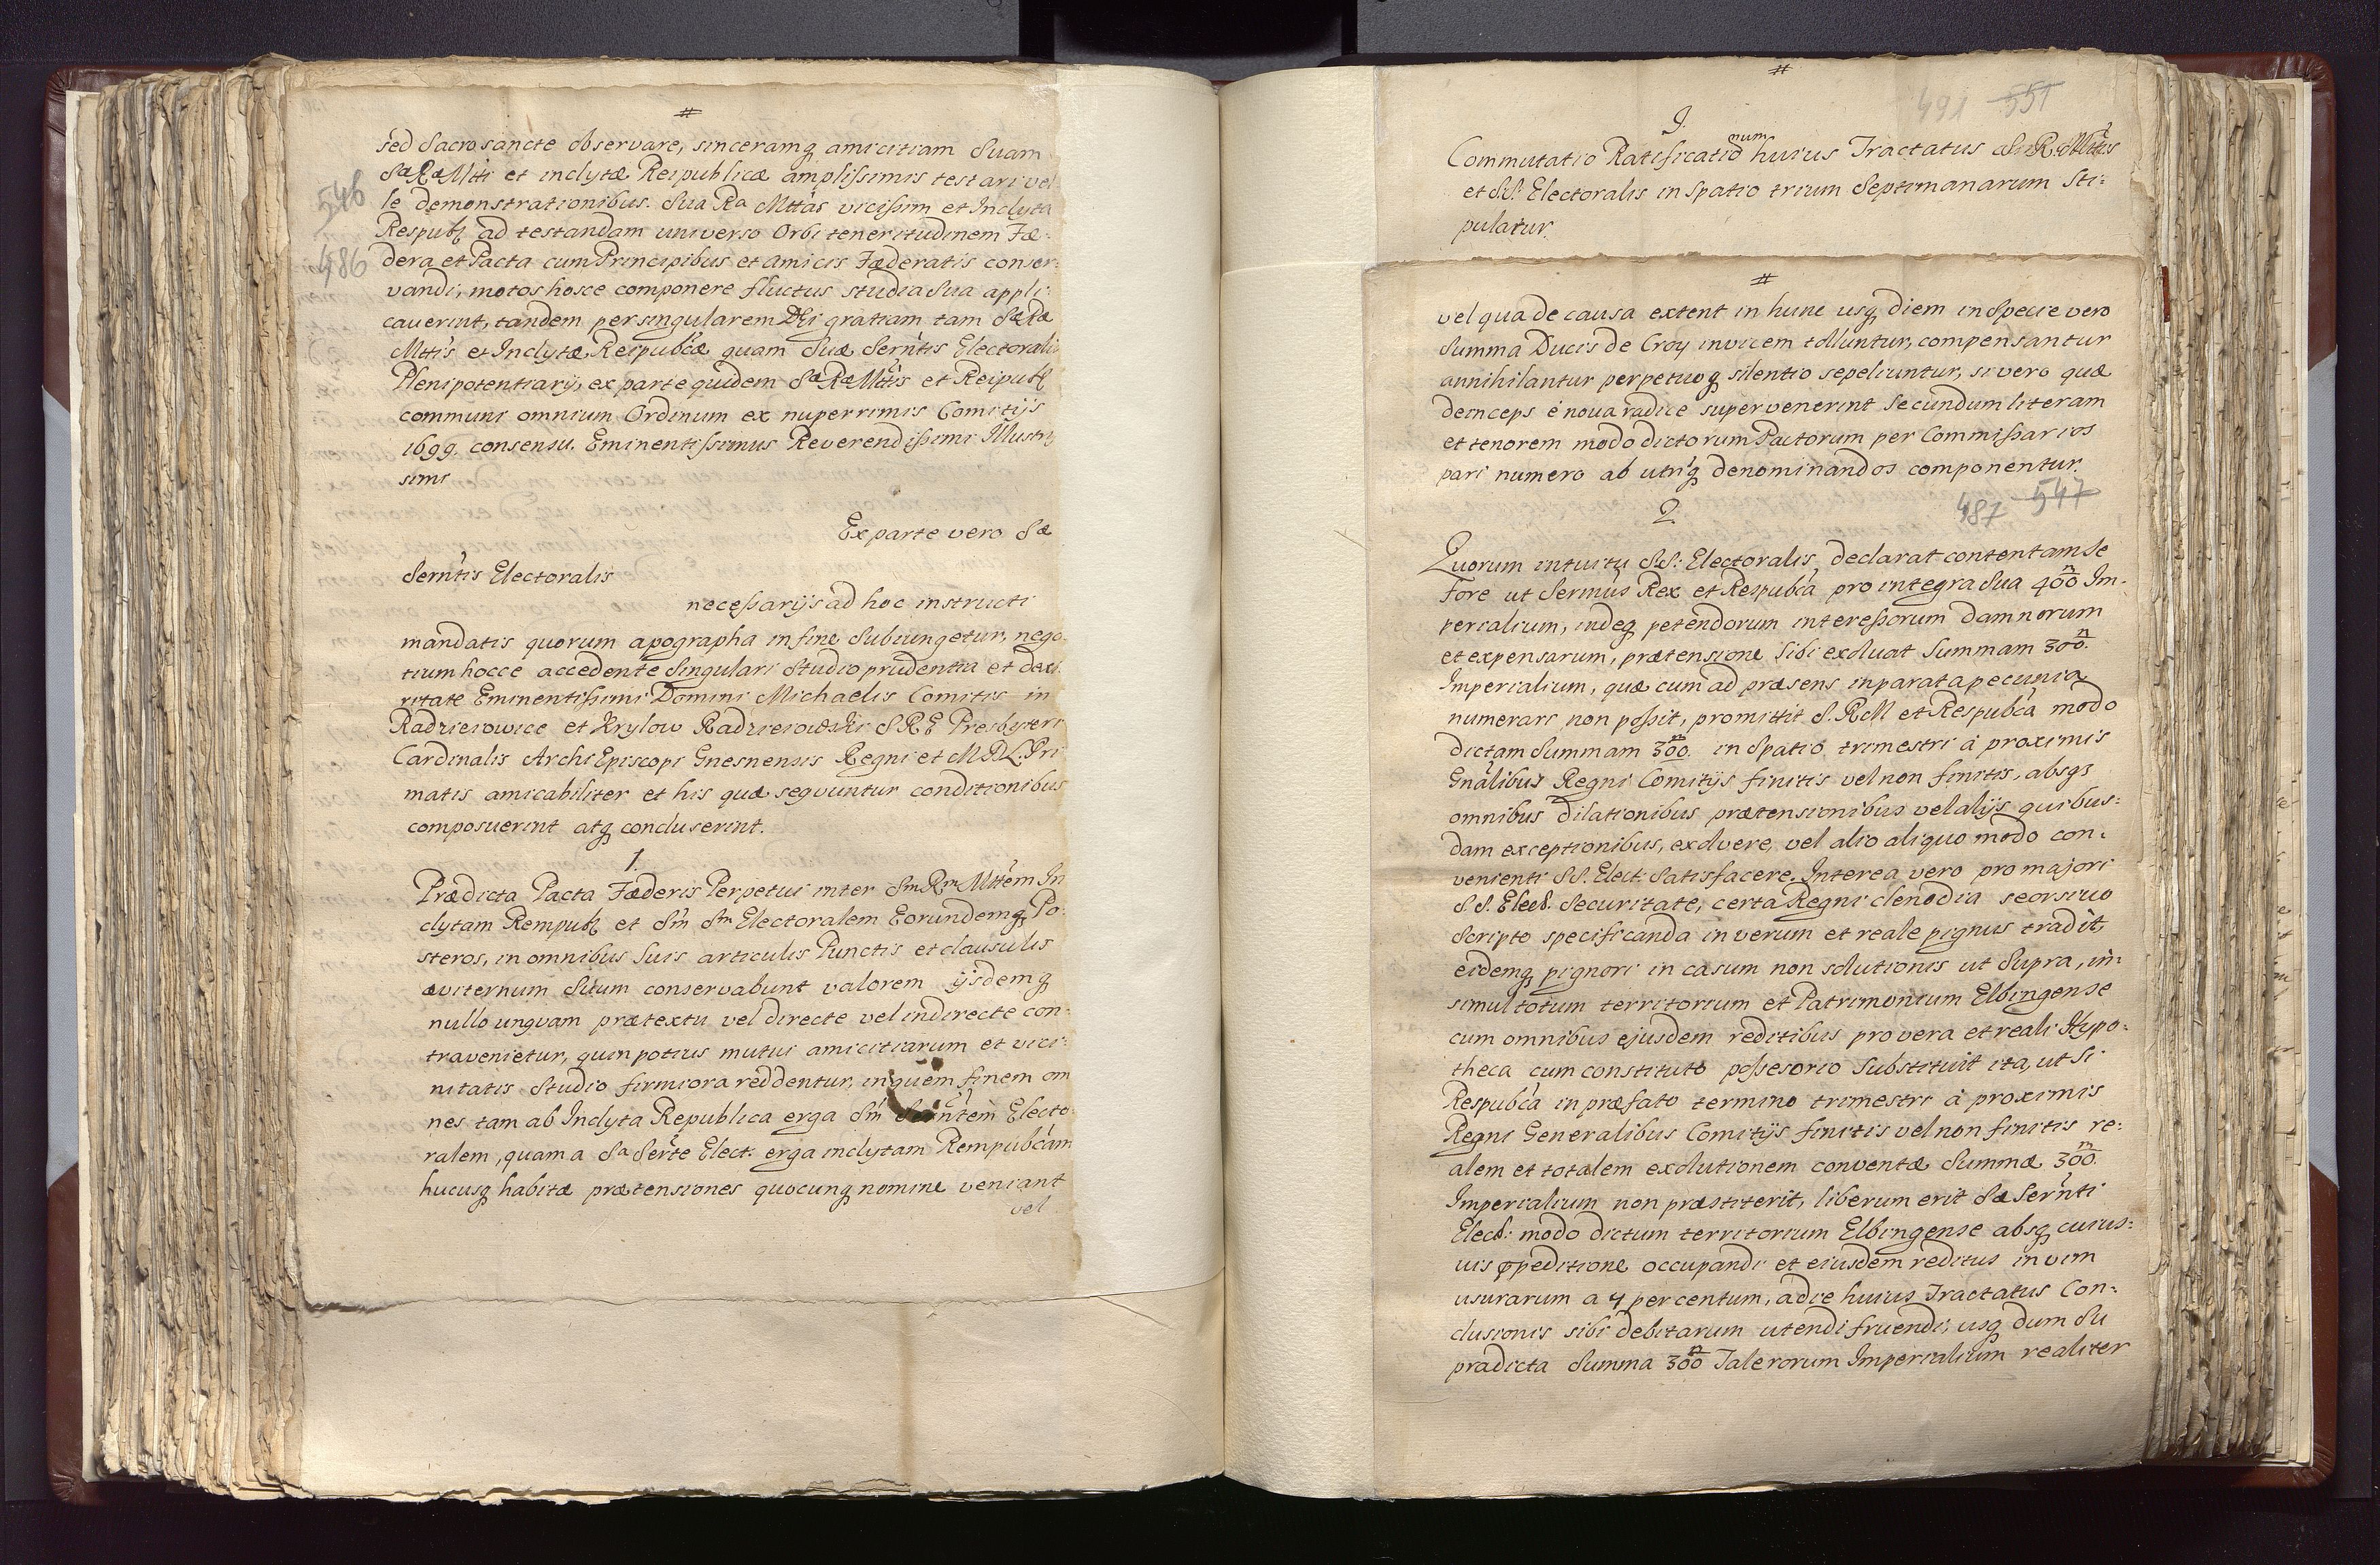 #
sed Sacrosancte observare, sinceramq amicitiam Suam
Sæ Ræ Mtti et inclytæ Reipublicæ amplissimis testari vel
546
le demonstrationibus. Sua Ra Mttas vicissim et Inclyta
Respub ad testandam universo Orbi teneritudinem Fæ-
486
dera et Pacta cum Principibus et amicis Fæderatis conser-
vandi, motos hosce componere fluctus studia Sua appli-
cauerint, tandem per singularem DEi gratiam tam Sæ Ræ
Mttis et Inclytæ Reipubcæ quam Suæ Serntis Electoralis
Plenipotentiarij, ex parte quidem Sæ Ræ Mttis et Reipub
communi omnium Ordinum ex nuperrimis Comitijs
1699. consensu. Eminentissimus Reverendissimi Illustris
simi
Ex parte vero Sæ
Serntis Electoralis
necessarijs ad hoc instructi
mandatis quorum apographa in fine Subiungetur, nego-
tium hocce accedente Singulari Studio prudentia et dext-
ritate Eminentissimi Domini Michaelis Comitis in
Radzieiowice et Krylow Radzieiowski S R E Presbyteri
Cardinalis Archi Episcopi Gnesnensis Regni et M D L. Pri
matis amicabiliter et his quæ seqvuntur conditionibus
composuerint atq concluserint.
1.
Prædicta Pacta Fæderis Perpetui inter Sm Rm Mttem In
clytam Rempub et Sm Sm Electoralem Eorundemq Po-
steros, in omnibus Suis articulis Punctis et clausulis
æviternum Suum conservabunt valorem ijsdemq
nullo unqvam prætextu vel directe vel indirecte con-
travenietur, quin potius mutui amicitiarum et vici-
nitatis Studio firmiora reddentur, in quem finem om
nes tam ab Inclyta Republica erga Sm Serntem Electo
ralem, quam a Sa Serte Elect: erga inclytam Rempubcam
hucusq habitæ prætensiones quocunq nomine veniant
vel
#
491 551
9.
Commutatio Ratificationum huius Tractatus S. R. Mttis
et S.S. Electoralis in Spatio trium Septimanarum Sti-
pulatur.
#
vel qua de causa extent in hunc usq diem in Specie vero
Summa Ducis de Croy invicem tolluntur, compensantur
annihilantur perpetuoq silentio sepeliuntur, si vero quæ
deinceps é noua radice supervenerint Secundum literam
et tenorem modo dictorum Pactorum per Commissarios
pari numero ab utriq denominandos componentur.
487 547
2
Quorum intuitu S.S: Electoralis declarat contentam Se
Fore ut Sermus Rex et Respubca pro integra Sua 400 m Im-
perialium, indeq petendorum interessorum damnorum
et expensarum, prætensione Sibi exolvat Summam 300. m
Imperialium, quæ cum ad præsens in parata pecunia
numerari non possit, promittit S. R M et Respubca modo
dictam Summam 300. m in Spatio trimestri à proximis
Gnalibus Regni Comitijs finitis vel non finitis, absq3
omnibus dilationibus prætensionibus vel alijs quibus-
dam exceptionibus, exolvere, vel alio aliquo modo con-
venienti S.S. Elect: Satisfacere. Interea vero pro majori
S.S. Elect. Securitate, certa Regni clenodia seorsivo
Scripto specificanda in verum et reale pignus tradit,
eidemq pignori in casum non solutionis ut Supra, in-
simul totum territorium et Patrimonium Elbingense
cum omnibus ejusdem reditibus pro vera et reali Hypo-
theca cum constituto possesorio Substituit ita, ut Si
Respubca in præfato termino trimestri à proximis
Regni Generalibus Comitijs finitis vel non finitis re-
alem et totalem exolutionem conventæ Summæ 300. m
Imperialium non præstiterit, liberum erit Sæ Sernti
Elect: modo dictum territorium Elbingense absq cuius-
uis opeditione occupandi et eiusdem reditus in vim
usurarum a 4 per centum, a die huius Tractatus Con-
clusionis sibi debitarum utendi fruendi, usq dum Su
pradicta Summa 300 m Talerorum Imperialium realiter